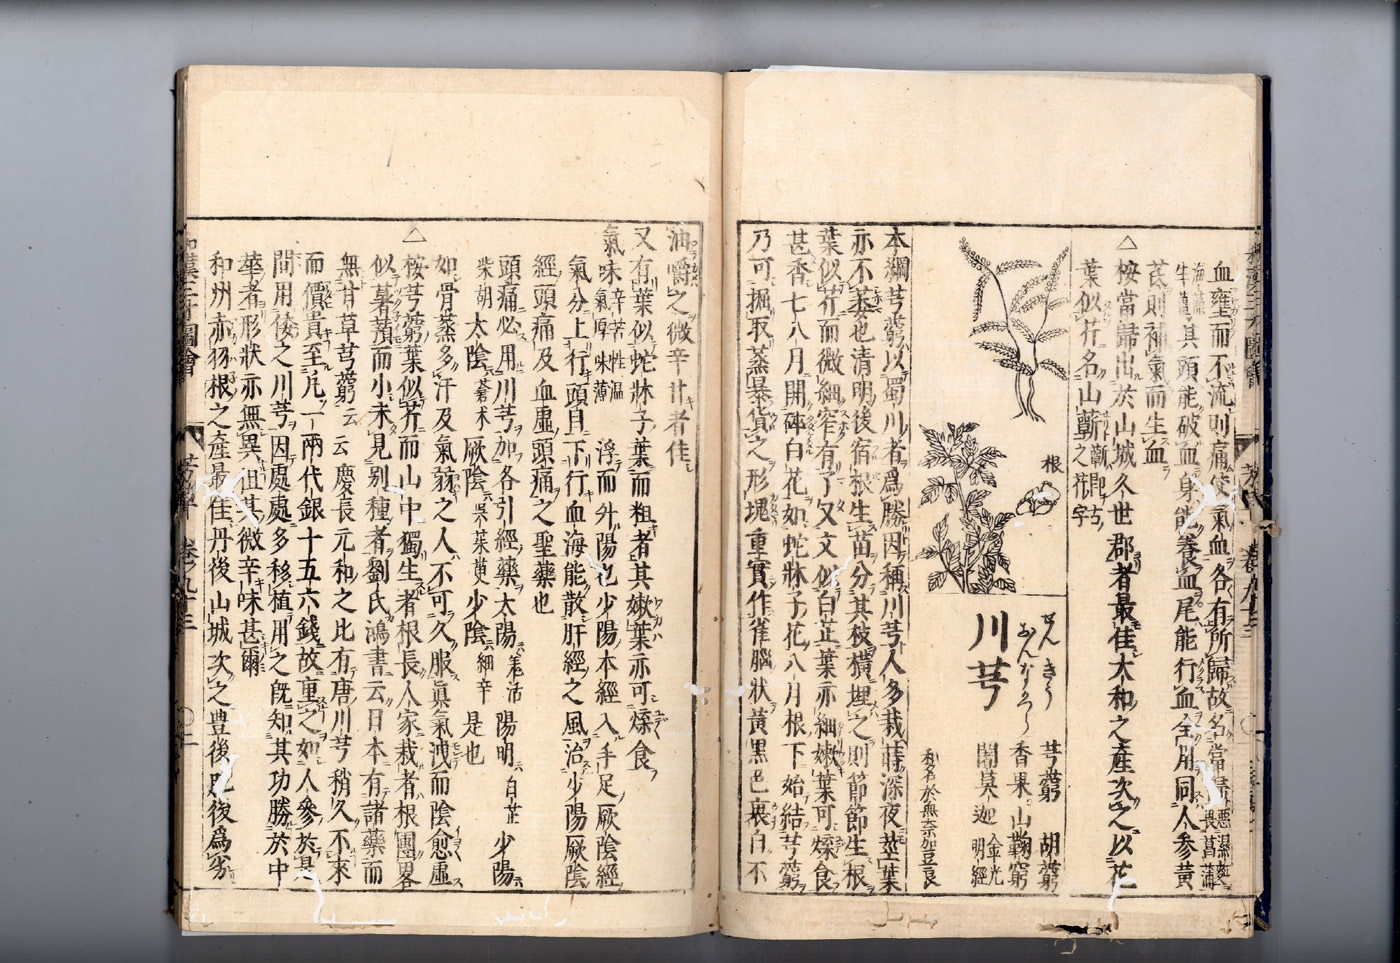 血壅而不流則痛使氣血各有所歸故名當歸 惡濕麪畏菖蒲
海藻牛蒙其頭能破血身能養血尾能行血全用同人参黄
茋則補氣而生血
△
桉當歸出於山城久世郡者最佳大和之產次之以花
葉似芥名山蘄 蘄即古之芹字
根
川芎
せんきう
おんなかつら
芎藭 胡藭
香果 山鞠窮
闍莫迦 金光明經
和名於無奈加豆良
本綱芎藭以蜀川者爲勝因稱川芎人多栽蒔深夜莖葉
亦不萎也清明後宿根生苗分其枝橫埋之則節節生根
葉似芥而微細窄有丫又文似白芷葉亦細嫩葉可煠食
甚香七八月開碎白花如蛇牀子花八月根下始結芎藭
乃可掘取蒸暴貨之形塊重實作雀腦狀黃黒色裏白不
油嚼之微辛甘者佳
又有葉似蛇牀子葉而粗者其嫩葉亦可煠食
氣味 辛苦性溫氣厚味薄 浮而升陽也少陽本經入手足厥陰經
氣分上行頭目下行血海能散肝經之風治少陽厥陰
經頭痛及血虛頭痛之聖藥也
頭痛必用川芎加各引經藥太陽 羗活 陽明 白芷 少陽
柴胡 太陰 蒼术 厥陰 呉茱萸 少陰 細辛 是也
如骨蒸多汗及氣弱之人不可久服眞氣洩而陰愈虛
△
桉芎藭葉似芥而山中獨生者根長人家栽者根團畧
似蔓蘋而小未見别種者劉氏鴻書云日本有諸藥而
無甘草芎藭云云慶長元和之比有唐川芎稍久不來
而價貴至凡一兩代銀十五六錢故重之如人參於是
間用倭之川芎因處處多移植用之既知其功勝於中
華者形狀亦無異但其微辛味甚爾
和州赤羽根之產最佳丹後山城次之豊後肥後爲劣
和漢三才圖會
芳草 卷ノ九十三